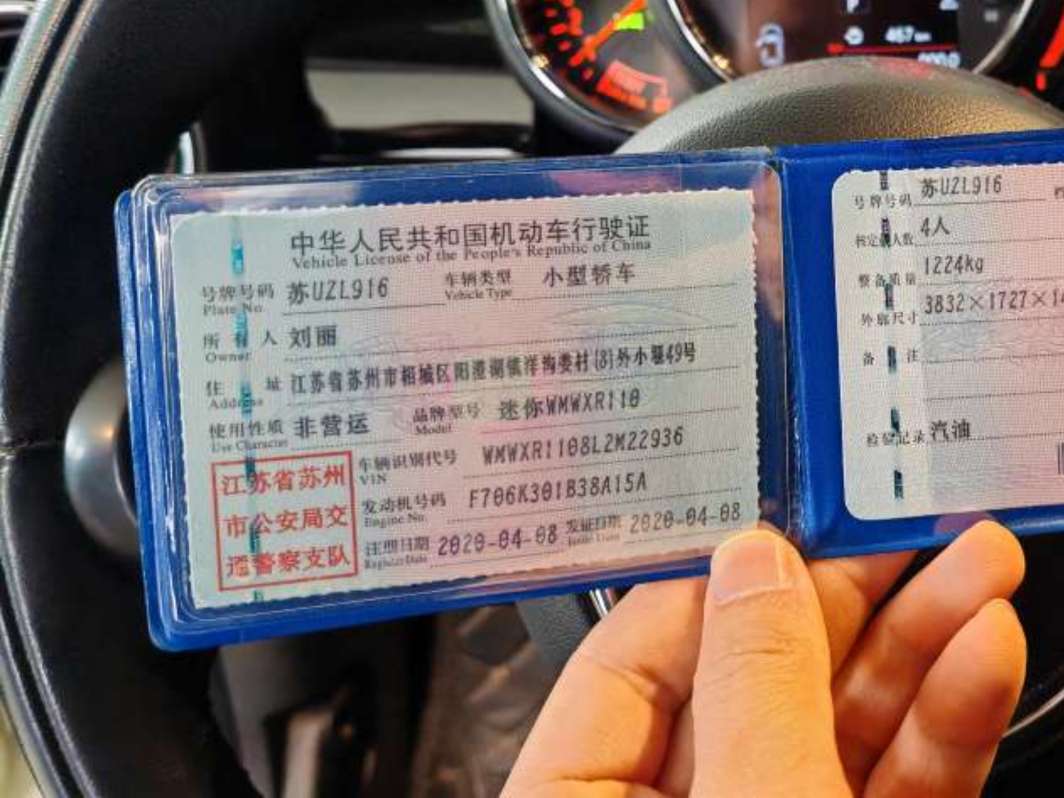 P
467 km
000.0
中华人民共和国机动车行驶证
Vehicle License of the People's Republic of China
号牌号码 苏UZL916 车辆类型 小型轿车
Plate No. Vehicle Type
所有人 刘丽
Owner
住址 江苏省苏州市相城区阳澄湖镇洋沟娄村(8)外小堰49号
Address
使用性质 非营运 品牌型号 迷你WMWXR110
Use Character Model
车辆识别代号 WMWXR1108L2M22936
VIN
发动机号码 F706K301B38A15A
Engine No.
注册日期 2020-04-08 发证日期 2020-04-08
Register Date Issue Date
江苏省苏州
市公安局交
通警察支队
号牌号码 苏UZL916
核定载人数 4人
整备质量 1224kg
外廓尺寸 3832×1727×
备注
检验记录 汽油